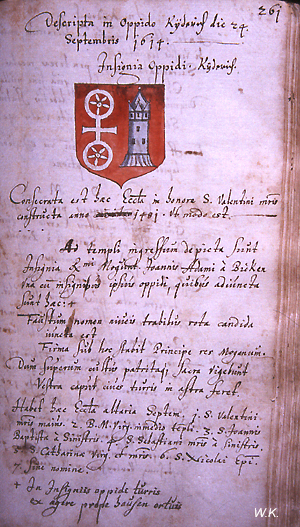 261
Descripta in Oppido Kÿdrich die 24
Septembris 1614.
Insignia Oppidi Kÿdrich.
Consecrata est hæc Eccla in honore S. Valentini mris
constructa anno 1481. Vt modo est.
Ad templi ingressum depicta sunt
Insignia Rmi Mogunt. Joannis Adami à Bicken
vna cu insignibus ipsius oppidi, quibus adiuncta
sunt hæc: +
Faustum nomen niueis trabibus rota candida
iuncta est
Firma sub hoc stabit Principe res Moganum.
Dum Superum cultus patritaque sacra vigebunt
Vestra caput ciues turris in astra feret
Habet hæc Eccla altaria Septem, 1. S. Valentini
mris maius. 2. B. M. Virg. in medio templi. 3. S. Joannis
Baptistæ à dextris. 4. S. Sebastiani mris à sinistris
5. S. Catharinæ Virg. et mris. 6. S. Nicolai Epi.
7. sine nomine.
+ In Insigniis oppidi turris
ex agere prope hausen
W.K.